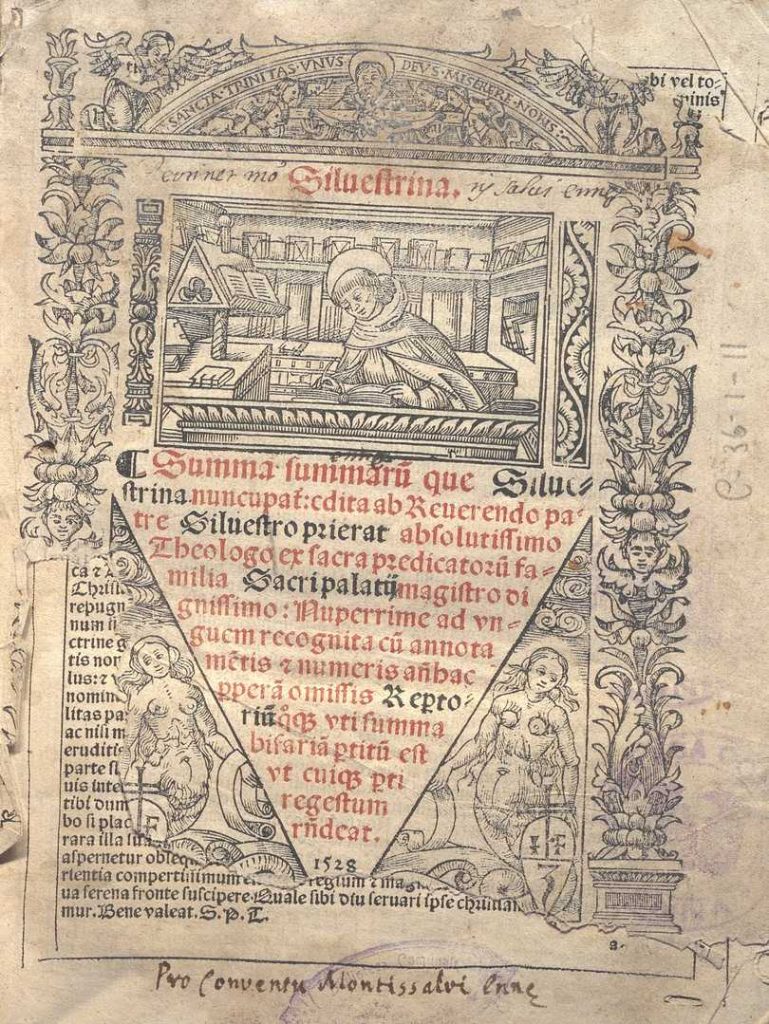 SANCTA·TRINITAS·VNVS DEVS·MISERERE·NOBIS·
bi vel to-
pinis
Siluestrina.
Summa summarū que Silue-
strina nuncupat̄: edita ab Reuerendo pa-
tre Siluestro prierat absolutissimo
Theologo ex sacra predicatorū fa-
milia Sacri palatij magistro di
gnissimo: Nuperrime ad vn-
guem recognita cū annota
mētis ⁊ numeris añhac
ꝑperā omissis Reꝑto-
riū q̊ꝗꝫ vti summa
bifariā ꝑtitū est
vt cuiqꝫ ꝑti
regestum
rñdeat.
1528
ca ⁊
Christ
repugn
num
ctrine g
tis non
lus: ⁊
nomin
litas pa
ac nisi m
eruditi
parte si
uis inte
tibi dum
bo si plac
rara illa
aspernetur obseq
rientia compertissimum regium ⁊ mag
ua serena fronte suscipere. Quale sibi diu seruari ipse christian
mur. Bene valeat. S. P. T.
a
C-36-1-11
Pro Conventu Montissalvi Enne